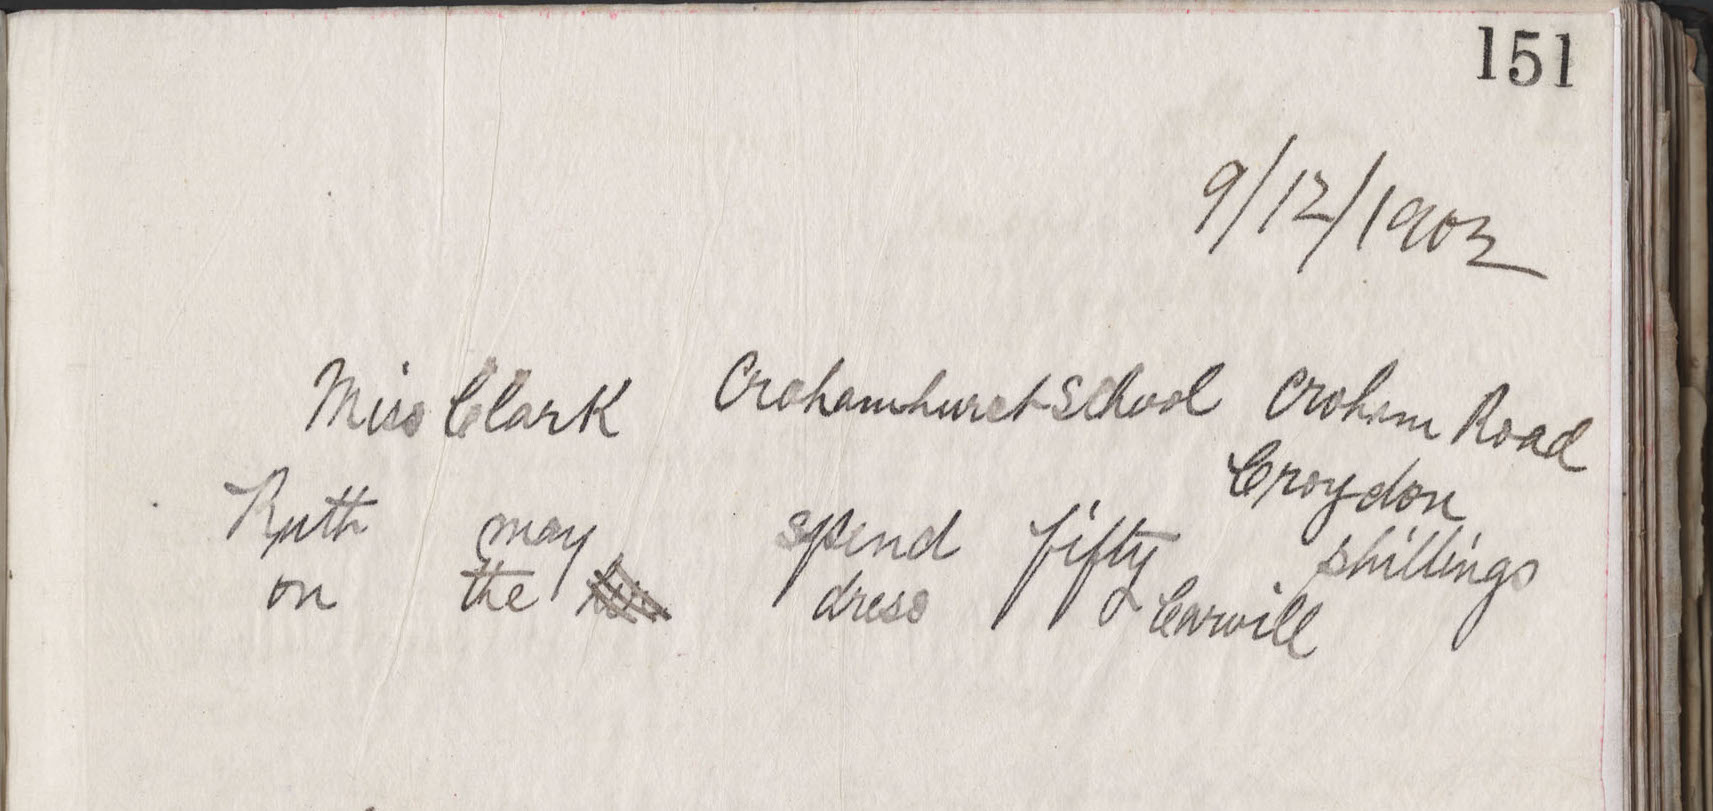 151
9/12/1903
Miss Clark Crohamhurst School Croham Road
Croydon
Ruth may spend fifty shillings
on the dress Carwill